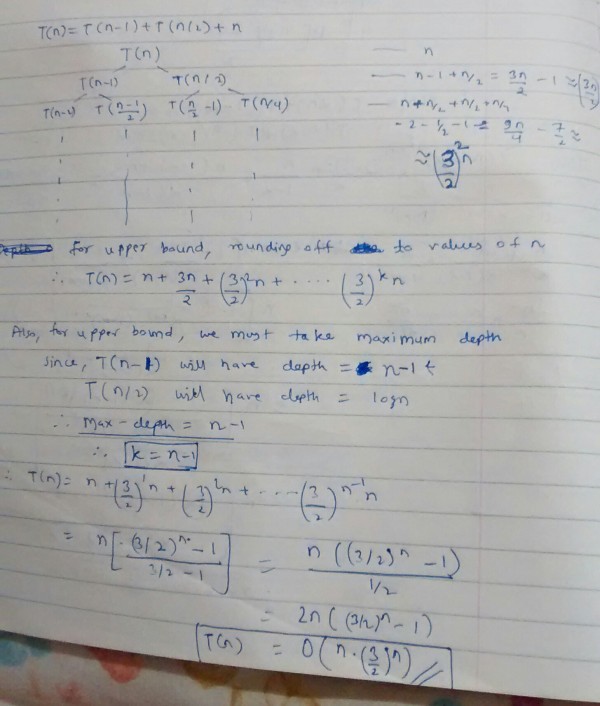 T(n) = T(n-1) + T(n/2) + n
T(n) — n
T(n-1) T(n/2) — n-1+n/2 = 3n/2 - 1 ≈ (3n/2)
T(n-2) T(n-1/2) T(n/2 -1) T(n/4) — n+n/2+n/2+n/4
-2-1/2-1 = 9n/4 - 7/2 ≈
≈ (3/2)^2 n
for upper bound, rounding off to values of n
∴ T(n) = n + 3n/2 + (3/2)^2 n + ..... (3/2)^k n
Also, for upper bound, we must take maximum depth
since, T(n-1) will have depth = n-1
T(n/2) will have depth = logn
∴ max-depth = n-1
∴ k = n-1
∴ T(n) = n + (3/2)^1 n + (3/2)^2 n + ..... (3/2)^n-1 n
= n[(3/2)^n - 1 / 3/2 - 1] = n((3/2)^n - 1) / 1/2
= 2n((3/2)^n - 1)
T(n) = O(n.(3/2)^n)